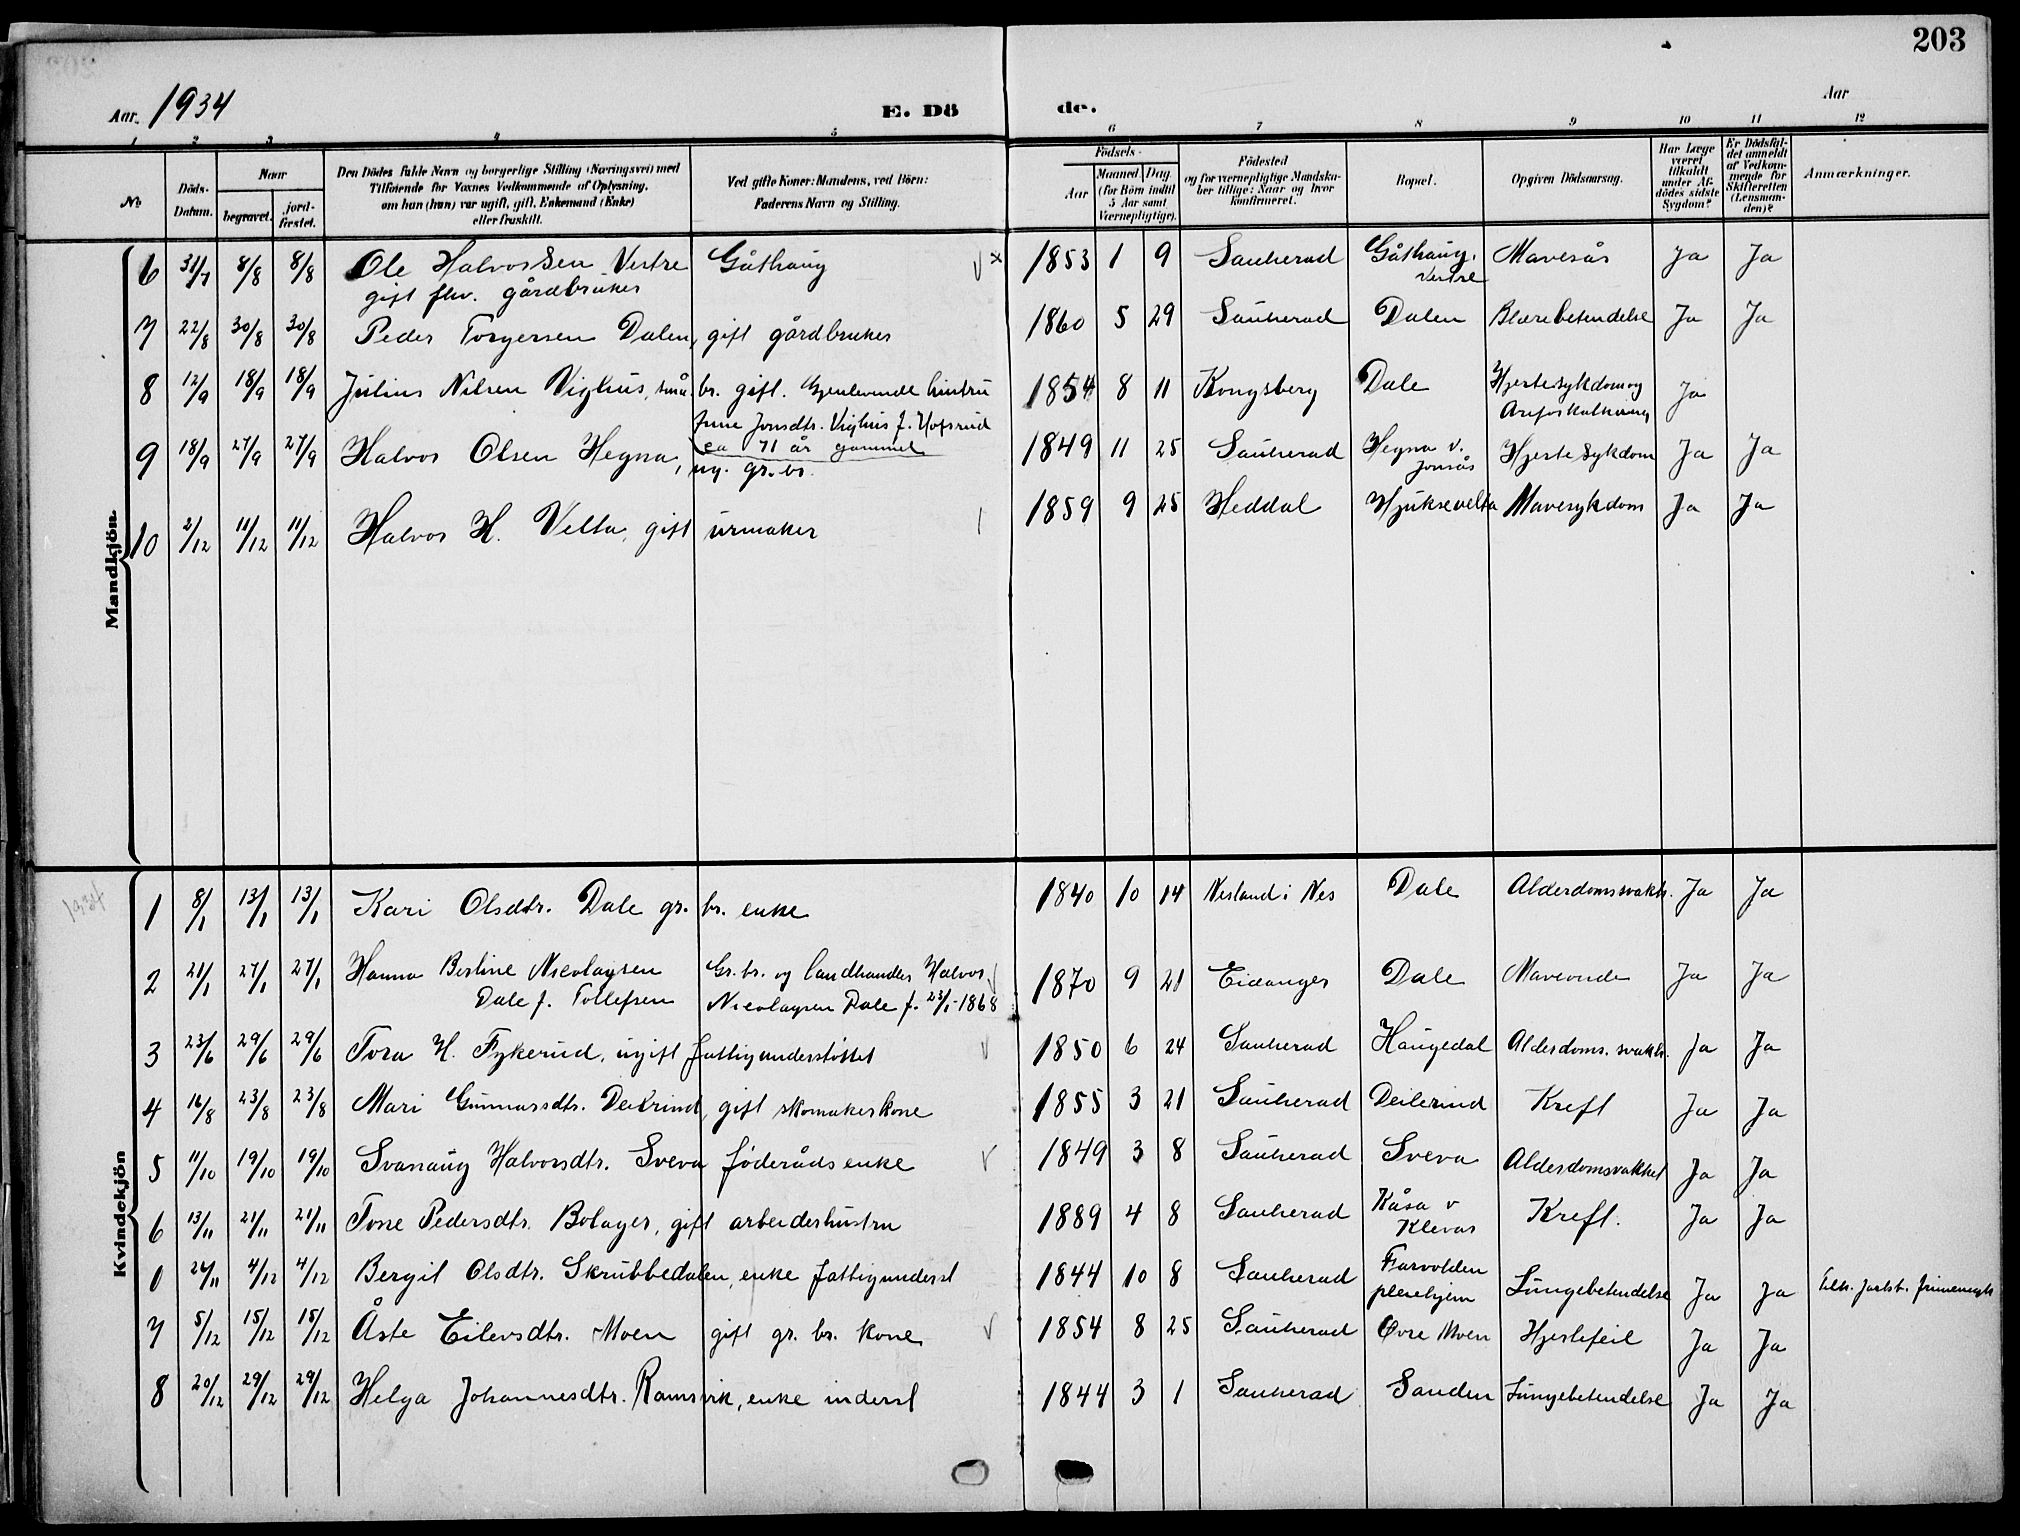 203
Aar. 1934
E. Dö
de.
Aar
1 2 3 4 5 6 7 8 9 10 11 12
No
Döds-Datum.
Naar
begravet.
jordfæstet.
Den Dödes fulde Navn og borgerlige Stilling (Næringsvei) med
Tilföiende for Voxnes Vedkommende af Oplysning,
om han (hun) var ugift, gift, Enkemand (Enke)
eller fraskilt.
Ved gifte Koner: Mandens, ved Börn:
Faderens Navn og Stilling.
Födsels-
Aar
Maaned Dag
(for Börn indtil
5 Aar samt
Værnepligtige).
Födested
og for værnepligtige Mandskaber tillige: Naar og hvor
konfirmeret.
Bopæl.
Opgiven Dödsaarsag.
Har Læge været tilkaldt under Afdödes sidste Sygdom?
Er Dödsfaldet anmeldt af Vedkommende for Skifteretten (Lensmanden)?
Anmærkninger.
Mandkjön
6 31/7 8/8 8/8 Ole Halvorsen Vertre Gåthaug 1853 1 9 Sauherad Gåthaug, Mavesår Ja Ja
gift fhv. gårdbruker Vertre
7 22/8 30/8 30/8 Peder Torgersen Dalen, gift gårdbruker 1860 5 29 Sauherad Dalen Blærebetendelse Ja Ja
8 12/9 18/9 18/9 Julius Nilsen Vighus, små br. gift. Gjenlevende hustru 1854 8 11 Kongsberg Dale Hjertesykdom og Ja
Jonsdtr. Vighus f. Hofsrud
ca 71 år gammel
9 18/9 27/9 27/9 Halvor Olsen Hegna, ug. gr. br. 1849 11 25 Sauherad Hegna v. Jonsås Hjertesykdom Ja Ja
10 2/12 11/12 11/12 Halvor H. Velta, gift urmaker 1859 9 25 Heddal Hjuksevelta Mavesykdom Ja Ja
Kvindekjön
1934
1 8/1 13/1 13/1 Kari Olsdtr. Dale gr. br. enke 1840 10 14 Nesland i Nes Dale Alderdomssvakh. Ja Ja
2 21/1 27/1 27/1 Hanna Bertine Nicolaysen Gr. br. og landhandler Halvor 1870 9 21 Eidanger Dale Maveonde Ja Ja
Dale f. Tollefsen Nicolaysen Dale f. 23/1-1868
3 23/6 29/6 29/6 Tora H. Fykerud, ugift fattigunderstøttet 1850 6 24 Sauherad Haugedal Alderdoms. svakh. Ja Ja
4 16/8 23/8 23/8 Mari Gunnarsdtr. Deilrind, gift skomakerkone 1855 3 21 Sauherad Deilerind Kreft Ja Ja
5 11/10 19/10 19/10 Svanaug Halvorsdtr. Sveva føderådsenke 1849 3 8 Sauherad Sveva Alderdomsvakhet Ja Ja
6 13/11 21/11 21/11 Tone Pedersdtr. Bolager, gift arbeiderhustru 1889 4 8 Sauherad Kåsa v Klevar Kreft. Ja Ja
0 26/11 4/12 4/12 Bergit Olsdtr. Skrubbedalen, enke fattigunderst 1844 10 8 Sauherad Furvolden pleiehjem Lungebetendelse Ja Ja
7 5/12 15/12 15/12 Åste Eilevsdtr. Moen gift gr. br. kone 1854 8 25 Sauherad Øvre Moen Hjertefeil Ja Ja
8 20/12 29/12 29/12 Helga Johannesdtr. Ramsvik, enke inderst 1844 3 1 Sauherad Sanden Lungebetendelse Ja Ja